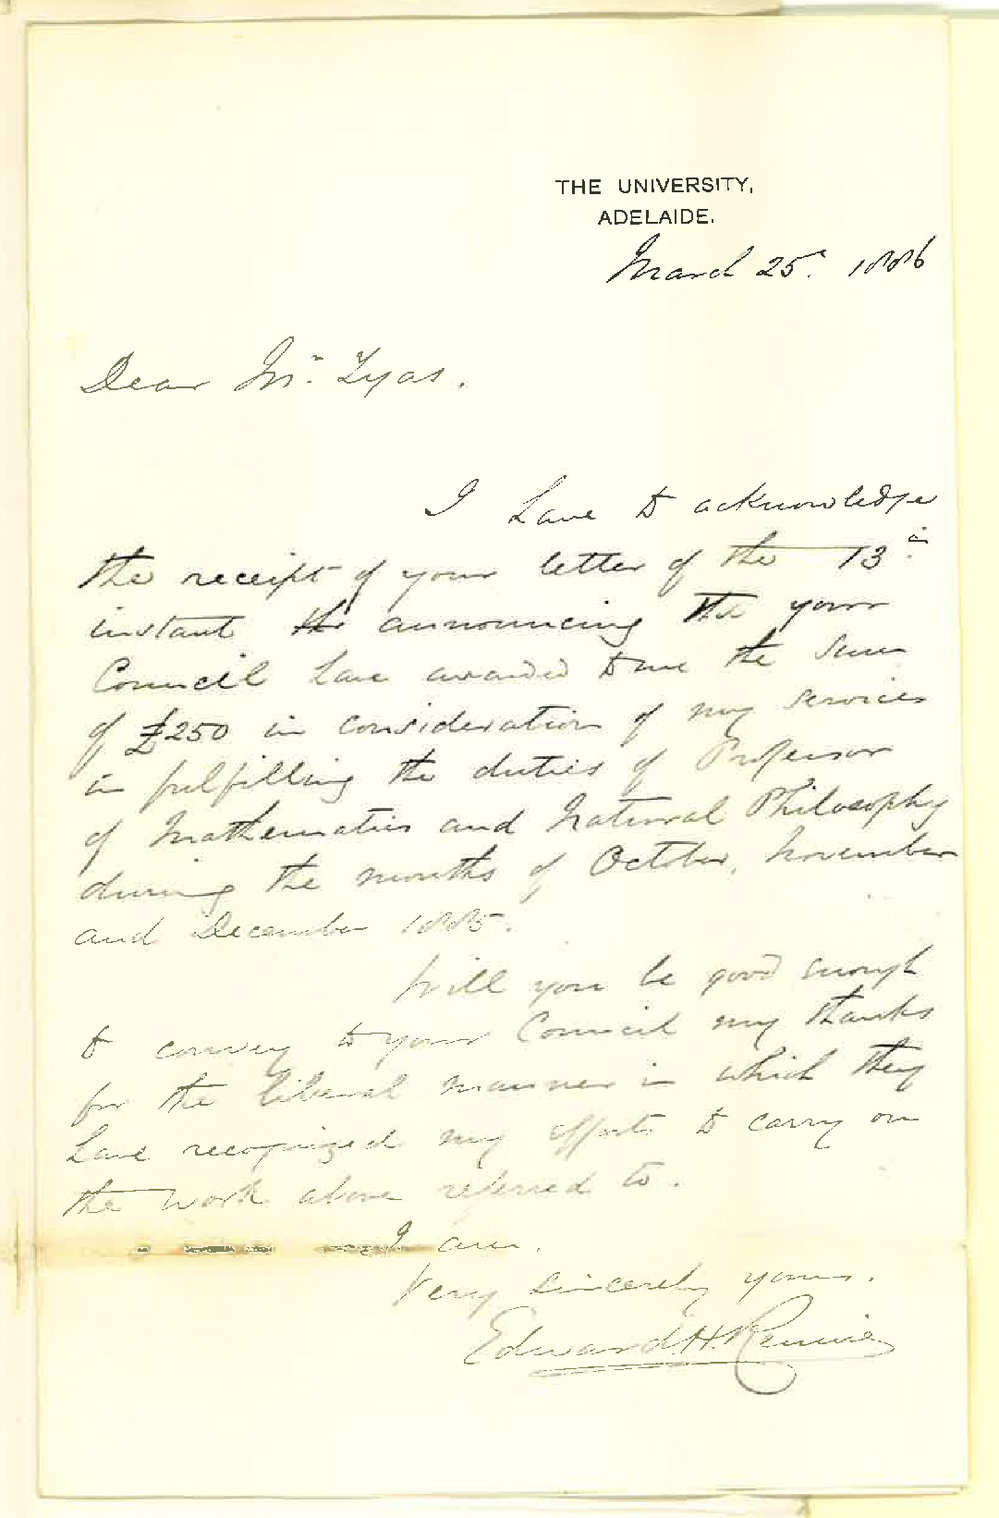 THE UNIVERSITY,
ADELAIDE.
March 25th 1886
Dear Mr. Tyas.
I have to acknowledge
the receipt of your letter of the 13th
instant the announcing that your
Council have awarded to me the sum
of £250 in consideration of my services
in fulfilling the duties of Professor
of Mathematics and Natural Philosophy
during the months of October, November
and December 1885.
Will you be good enough
to convey to your Council my thanks
for the liberal manner in which they
have recognized my efforts to carry on
the work above referred to.
I am.
Very sincerely yours.
Edward H. Rennie